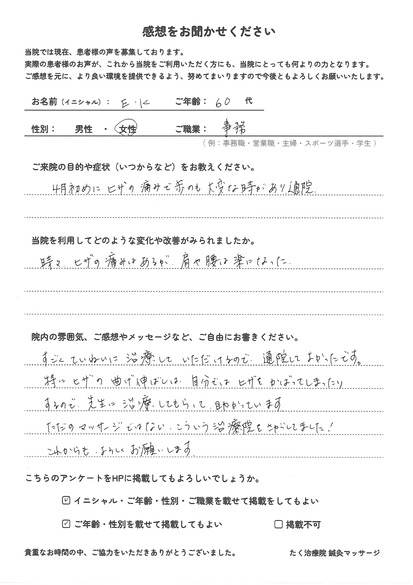 感想をお聞かせください
当院では現在、患者様の声を募集しております。
実際の患者様のお声が、これから当院をご利用いただく方にも、当院にとっても何よりの力となります。
ご感想を元に、より良い環境を提供できるよう、努めてまいりますので今後ともよろしくお願いいたします。
お名前（イニシャル）： E.K ご年齢： 60 代
性別： 男性 ・ 女性 ご職業： 事務
（ 例：事務職・営業職・主婦・スポーツ選手・学生 ）
ご来院の目的や症状（いつからなど）をお教えください。
4月初めに ヒザの痛みで歩くのも大変な時があり通院
当院を利用してどのような変化や改善がみられましたか。
時々、ヒザの痛みはあるが、肩や腰は楽になった.
院内の雰囲気、ご感想やメッセージなど、ご自由にお書きください。
すごくていねいに治療して いただけるので、通院してよかったです。
特にヒザの曲げ伸ばしは、自分では ヒザをかばってしまったり
するので、先生に治療してもらって、助かっています
ただのマッサージではない、こういう治療院をさがしてました!
これからも、よろしくお願いします
こちらのアンケートをHPに掲載してもよろしいでしょうか。
☑ イニシャル・ご年齢・性別・ご職業を載せて掲載をしてもよい
☑ ご年齢・性別を載せて掲載してもよい □ 掲載不可
貴重なお時間の中、ご協力をいただきありがとうございました。 たく治療院 鍼灸マッサージ